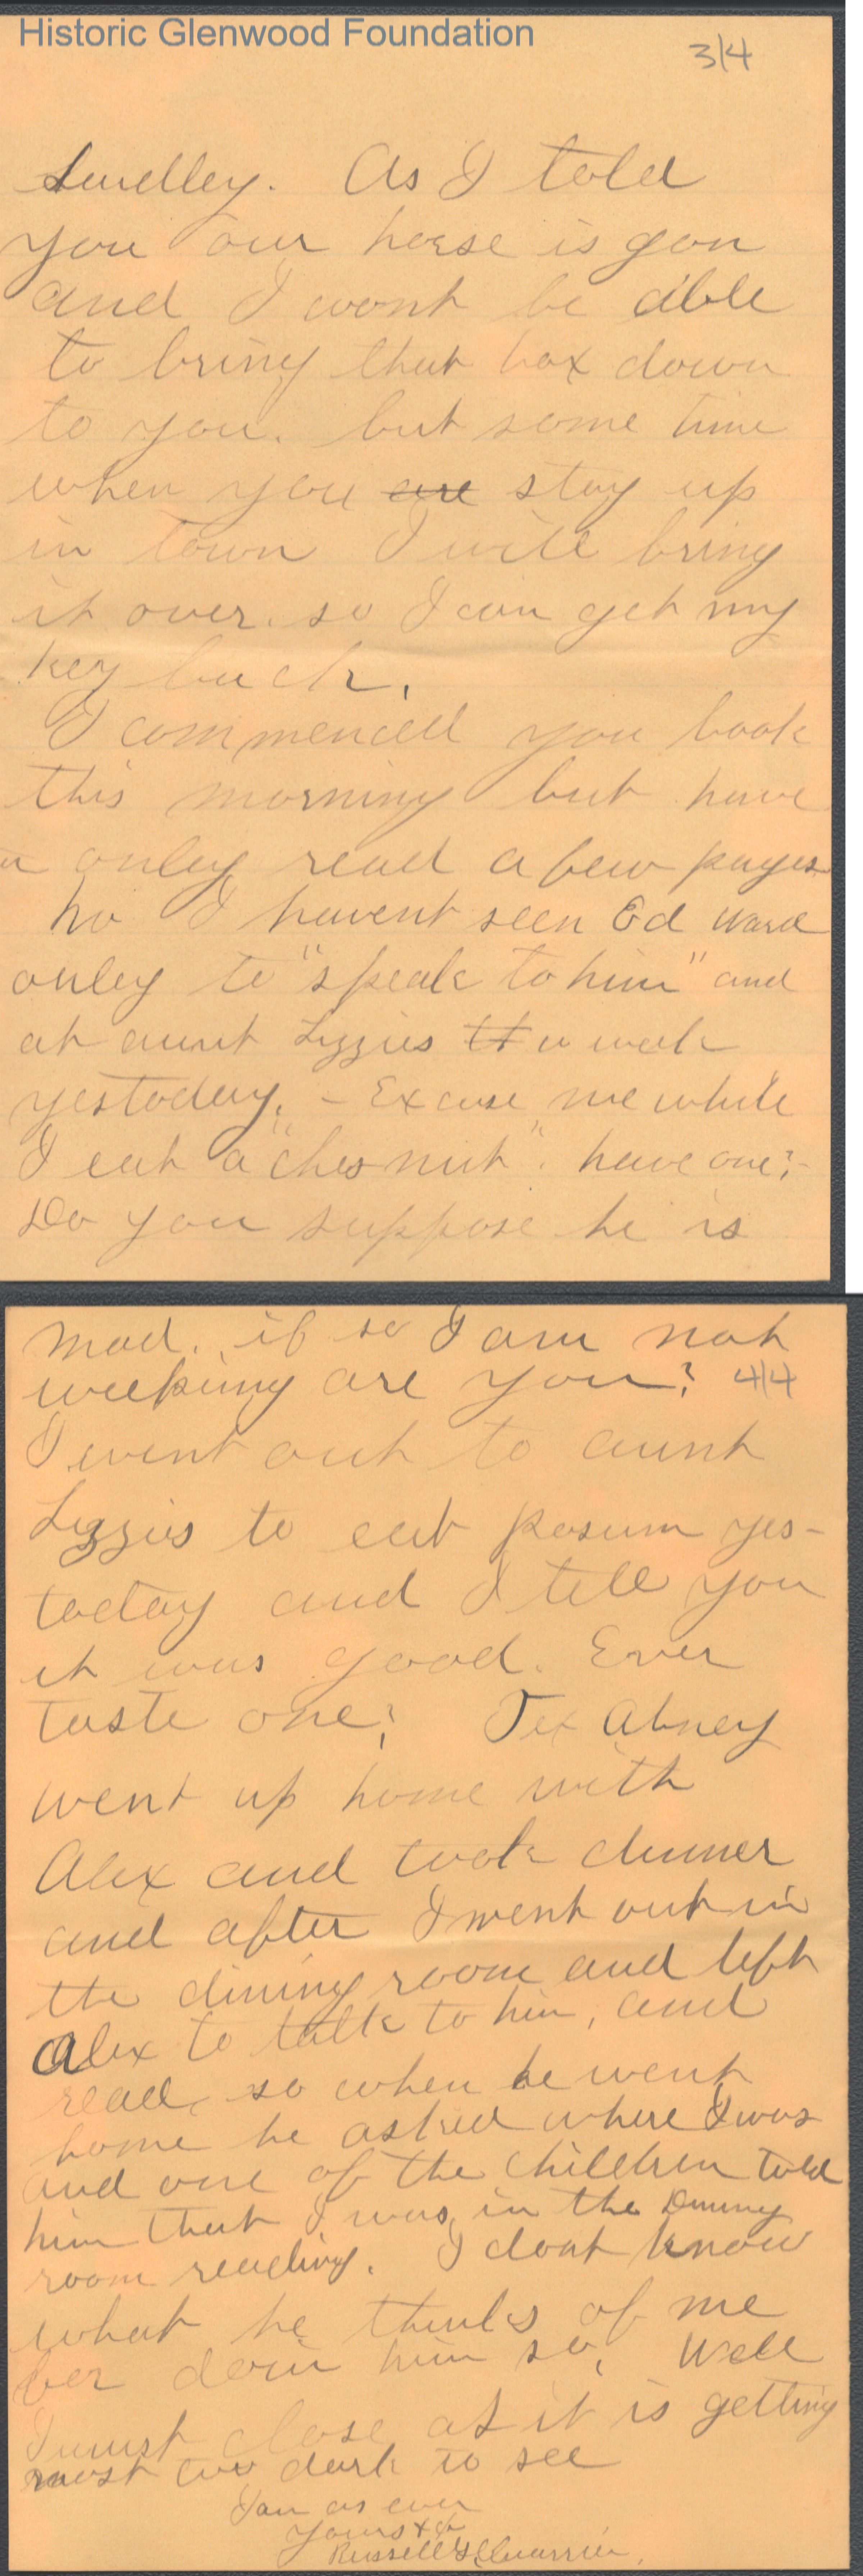 Historic Glenwood Foundation
3/4
Smelley. As I told
you our horse is gon
and I wont be able
to bring that box down
to you. but some time
when you are stay up
in town I will bring
it over. so I can get my
key back.
I commenced you book
this morning but have
only read a few pages
No I havent seen Ed Ward
onley to "speak to him" and
at aunt Lizzies a week
yestoday. - Excuse me while
I eat a "chesnut". have one?
Do you suppose he is
mad. if so I am not
weeking are you? 4/4
I went out to aunt
Lizzies to eat posum yes-
today and I tell you
it was good. Ever
taste one? Tex Abney
went up home with
Alex and took dinner
and after I went out in
the dining room and left
Alex to talk to him, and
read, so when he went
home he asked where I was
and one of the children told
him that I was in the Dining
room reading. I dont know
what he thinks of me
for doin him so. Well
I must close as it is getting
most too dark to see
I am as ever
yours
Russell G. Quarrier.